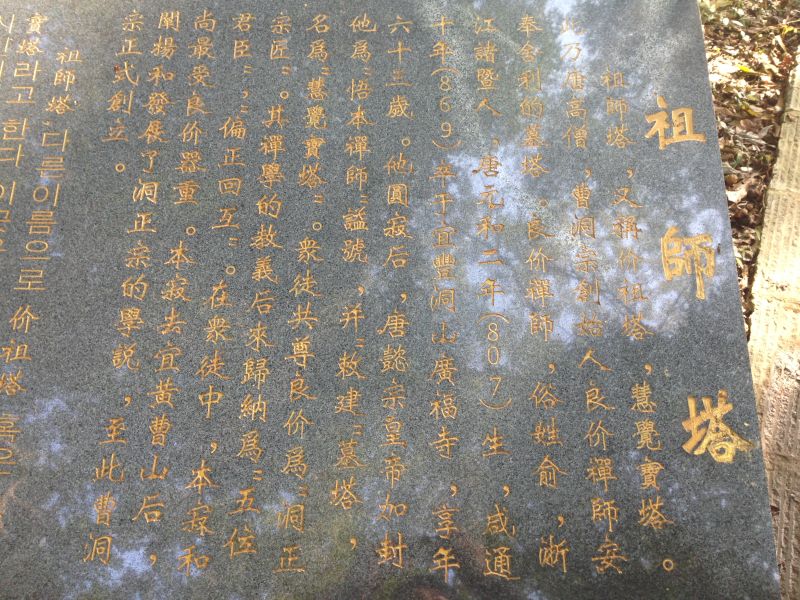 祖師塔
祖師塔，又稱价祖塔，慧覺寶塔。
此乃唐高僧，曹洞宗創始人良价禪師安
奉舍利的墓塔。良价禪師，俗姓俞，浙
江諸暨人，唐元和二年(807)生，咸通
十年(869)卒于宜豐洞山廣福寺，享年
六十三歲。他圓寂后，唐懿宗皇帝加封
他爲"悟本禪師"謚號，并"敕建"墓塔，
名爲"慧覺寶塔"。衆徒共尊良价爲"洞正
宗匠"。其禪學的教義后來歸納爲"五位
君臣"，"偏正回互"。在衆徒中，本寂和
尚最受良价器重。本寂去宜黄曹山后，
闡揚和發展了洞正宗的學説，至此曹洞
宗正式創立。
祖師塔: 다른 이름으로 价祖塔 혹은
寶塔라고 한다